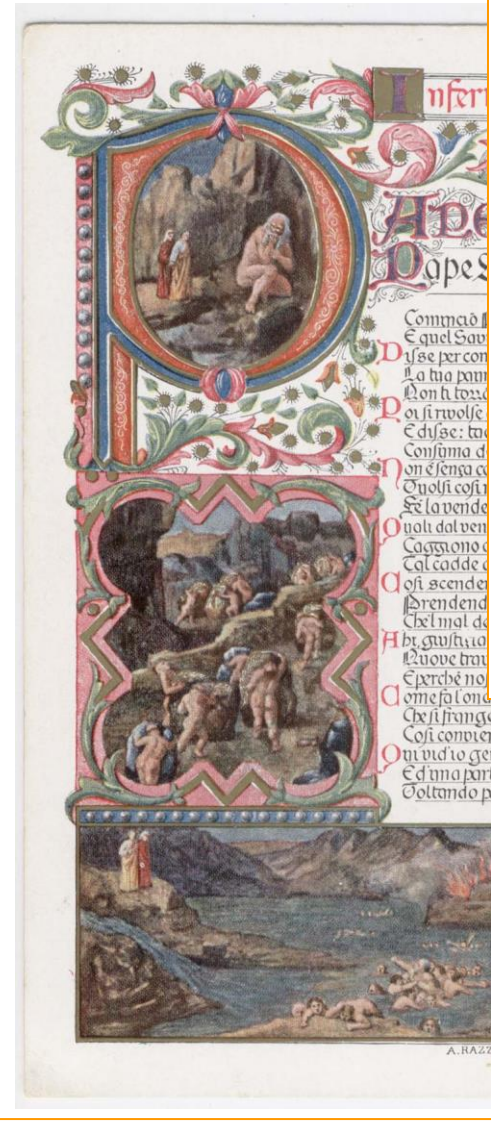 Infern
PAPE
Pape S
Cominciò P
E quel Savi
Disse per con
La tua paur
Non ti torrà
Poi si rivolse
E disse: tac
Consuma d
Non è senza ca
Vuolsi così n
Fè la vende
Quali dal ven
Caggiono a
Tal cadde a
Così scende
Prendend
Che'l mal de
Ahi, giustizia
Nuove trav
E perché nos
Come fa l'ond
Che si frange
Così convien
Qui vid'io gen
Ed'una part
Voltando p
A. RAZZ